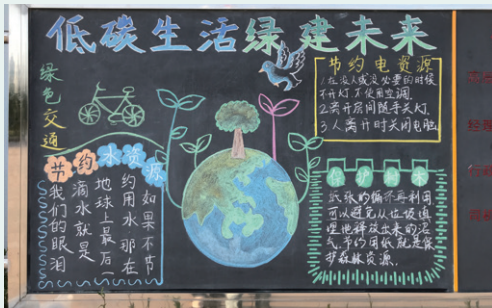 低碳生活绿建未来
绿色交通
节约水资源
如果不节
约用水那在
地球上最后一
滴水就是
我们的眼泪
节约电资源
1.在没人或没必要的时候
不开灯不使用空调.
2.离开房间随手关灯.
3.人离开时关闭电脑
保护树木
纸张的循环再利用
可以避免从垃圾填
埋地释放出来的沼
气,节约用纸就是保
护森林资源.
经理